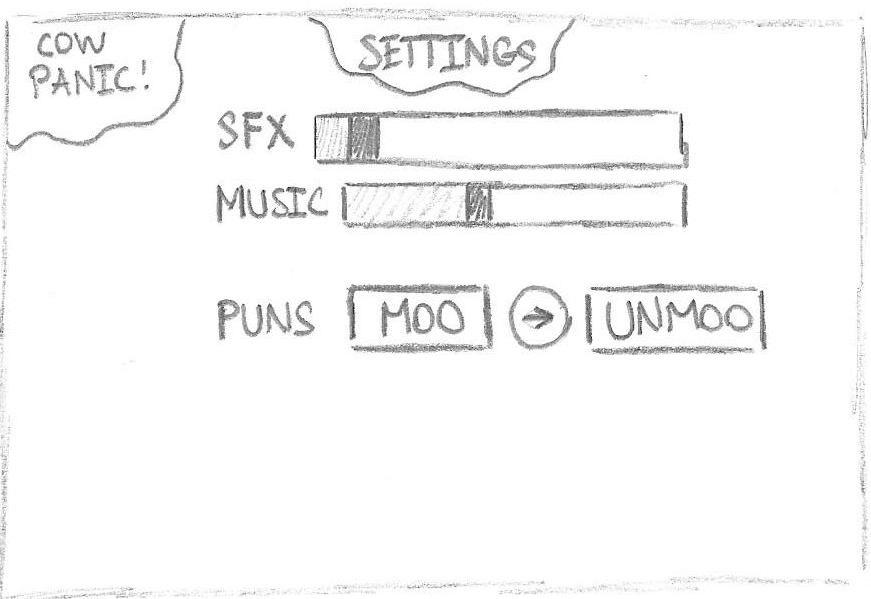 COW
PANIC!
SETTINGS
SFX
MUSIC
PUNS MOO → UNMOO